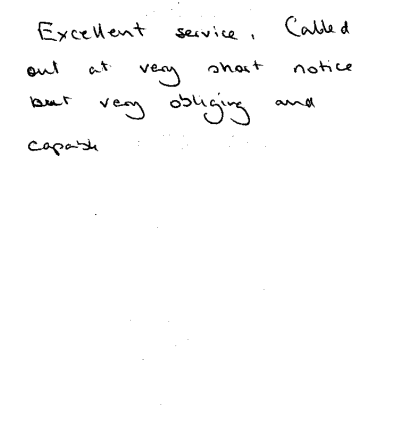 Excellent service. Called
out at very short notice
but very obliging and
capable